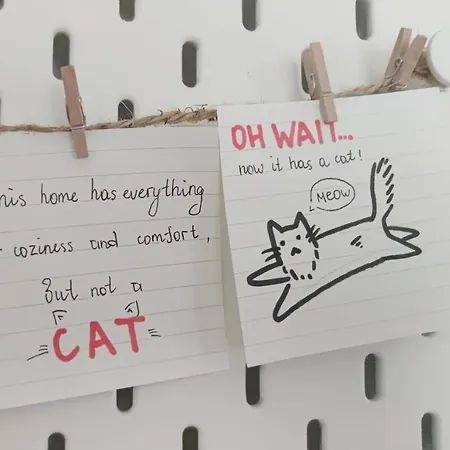 his home has everything
coziness and comfort,
But not a
CAT
OH WAIT...
now it has a cat!
MEOW